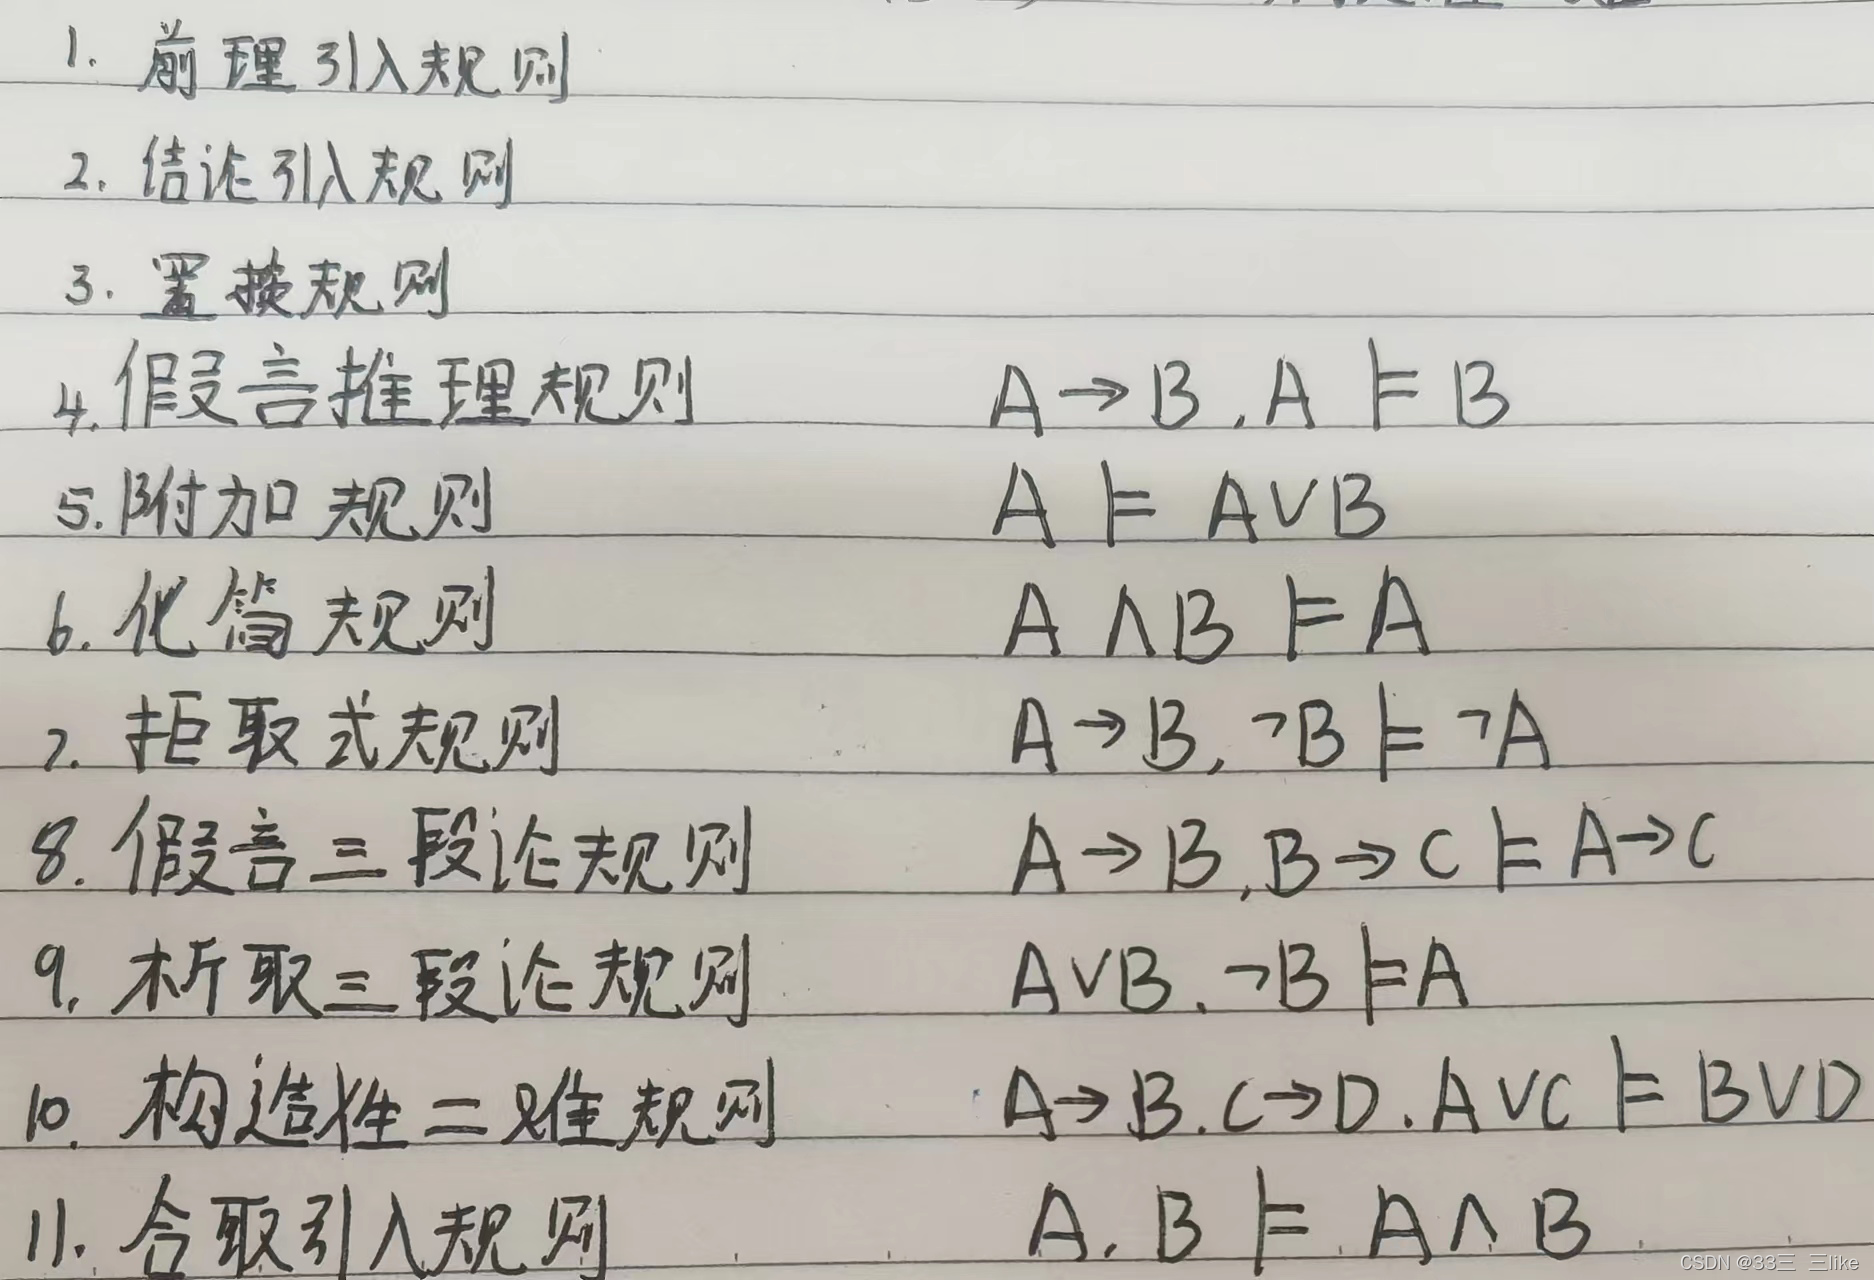 1. 前理引入规则
2. 结论引入规则
3. 置换规则
4. 假言推理规则 A→B,A⊨B
5. 附加规则 A⊨A∨B
6. 化简规则 A∧B⊨A
7. 拒取式规则 A→B,¬B⊨¬A
8. 假言三段论规则 A→B,B→C⊨A→C
9. 析取三段论规则 A∨B,¬B⊨A
10. 构造性二难规则 A→B.C→D.A∨C⊨B∨D
11. 合取引入规则 A.B⊨A∧B
CSDN @33三 三like